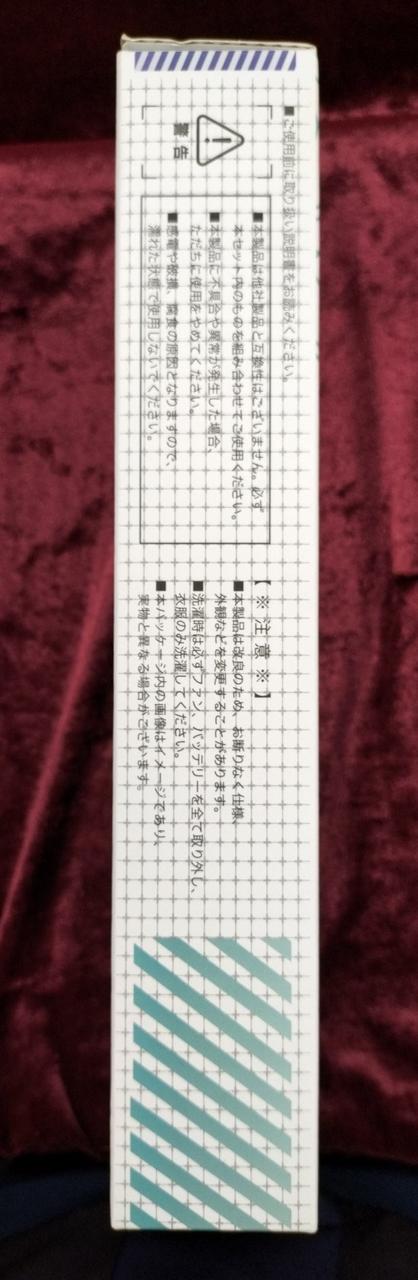 ■ご使用前に取り扱い説明書をお読みください。
警告
■本製品は他社製品と互換性はございません。必ず
本セット内のものを組み合わせてご使用ください。
■本製品に不具合や異常が発生した場合、
ただちに使用をやめてください。
■感電や破損、腐食の原因となりますので、
濡れた状態で使用しないでください。
【※注意※】
■本製品は改良のため、お断りなく仕様、
外観などを変更することがあります。
■洗濯時は必ずファン、バッテリーを全て取り外し、
衣服のみ洗濯してください。
■本パッケージ内の画像はイメージであり、
実物と異なる場合がございます。